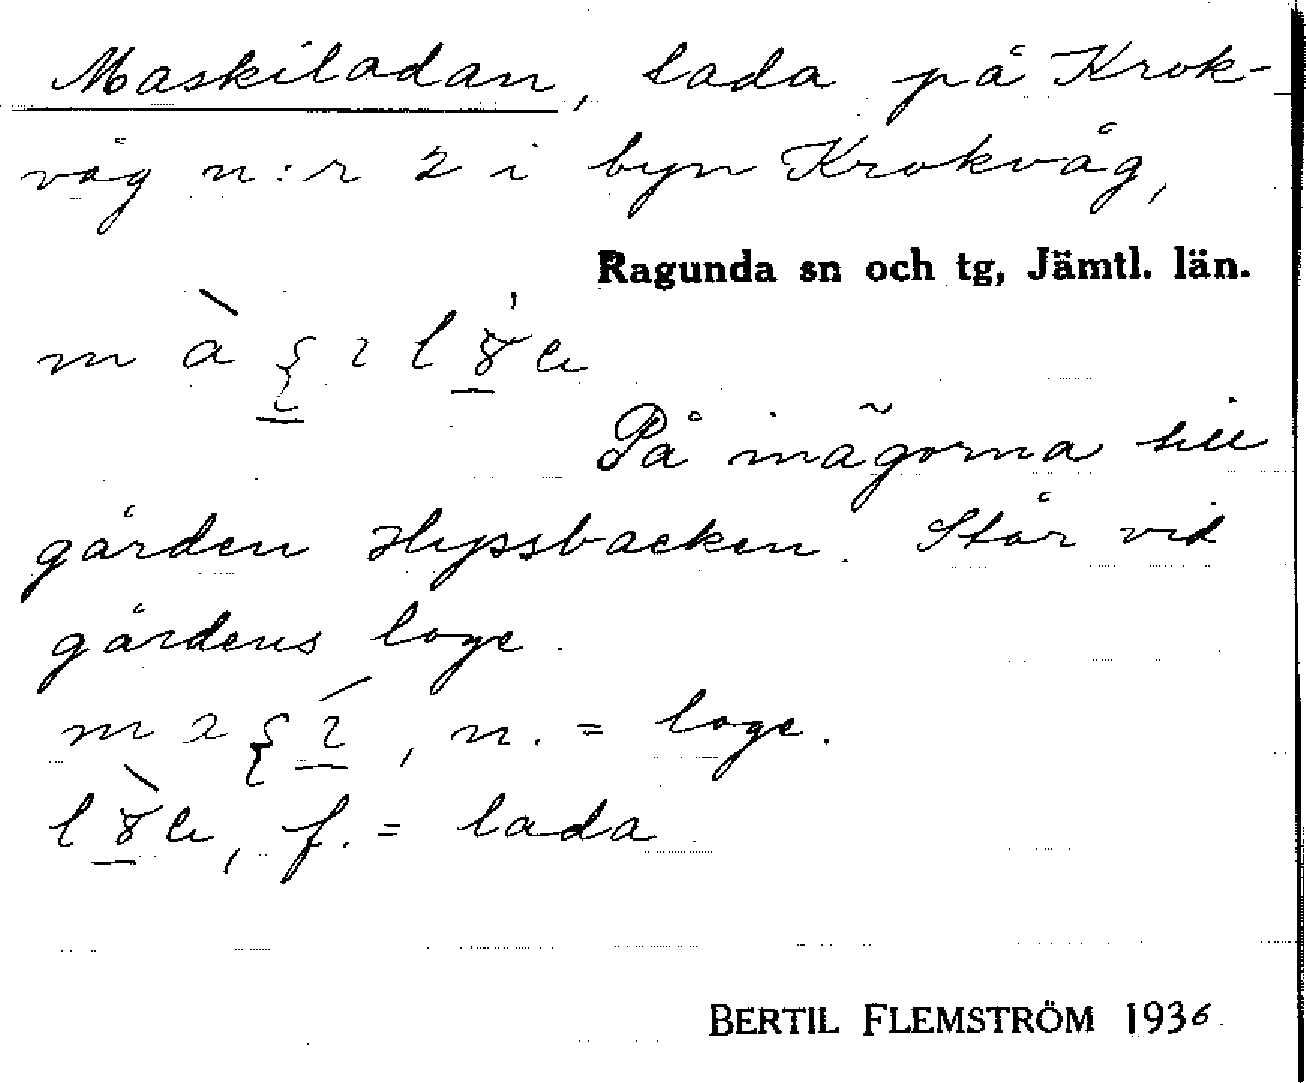 Maskiladan, lada på Krok-
våg n:r 2 i byn Krokvåg,
Ragunda sn och tg, Jämtl. län.
På inägorna till
gården Hyssbacken. Står vid
gårdens loge.
, n. = loge.
, f. = lada
BERTIL FLEMSTRÖM 1936